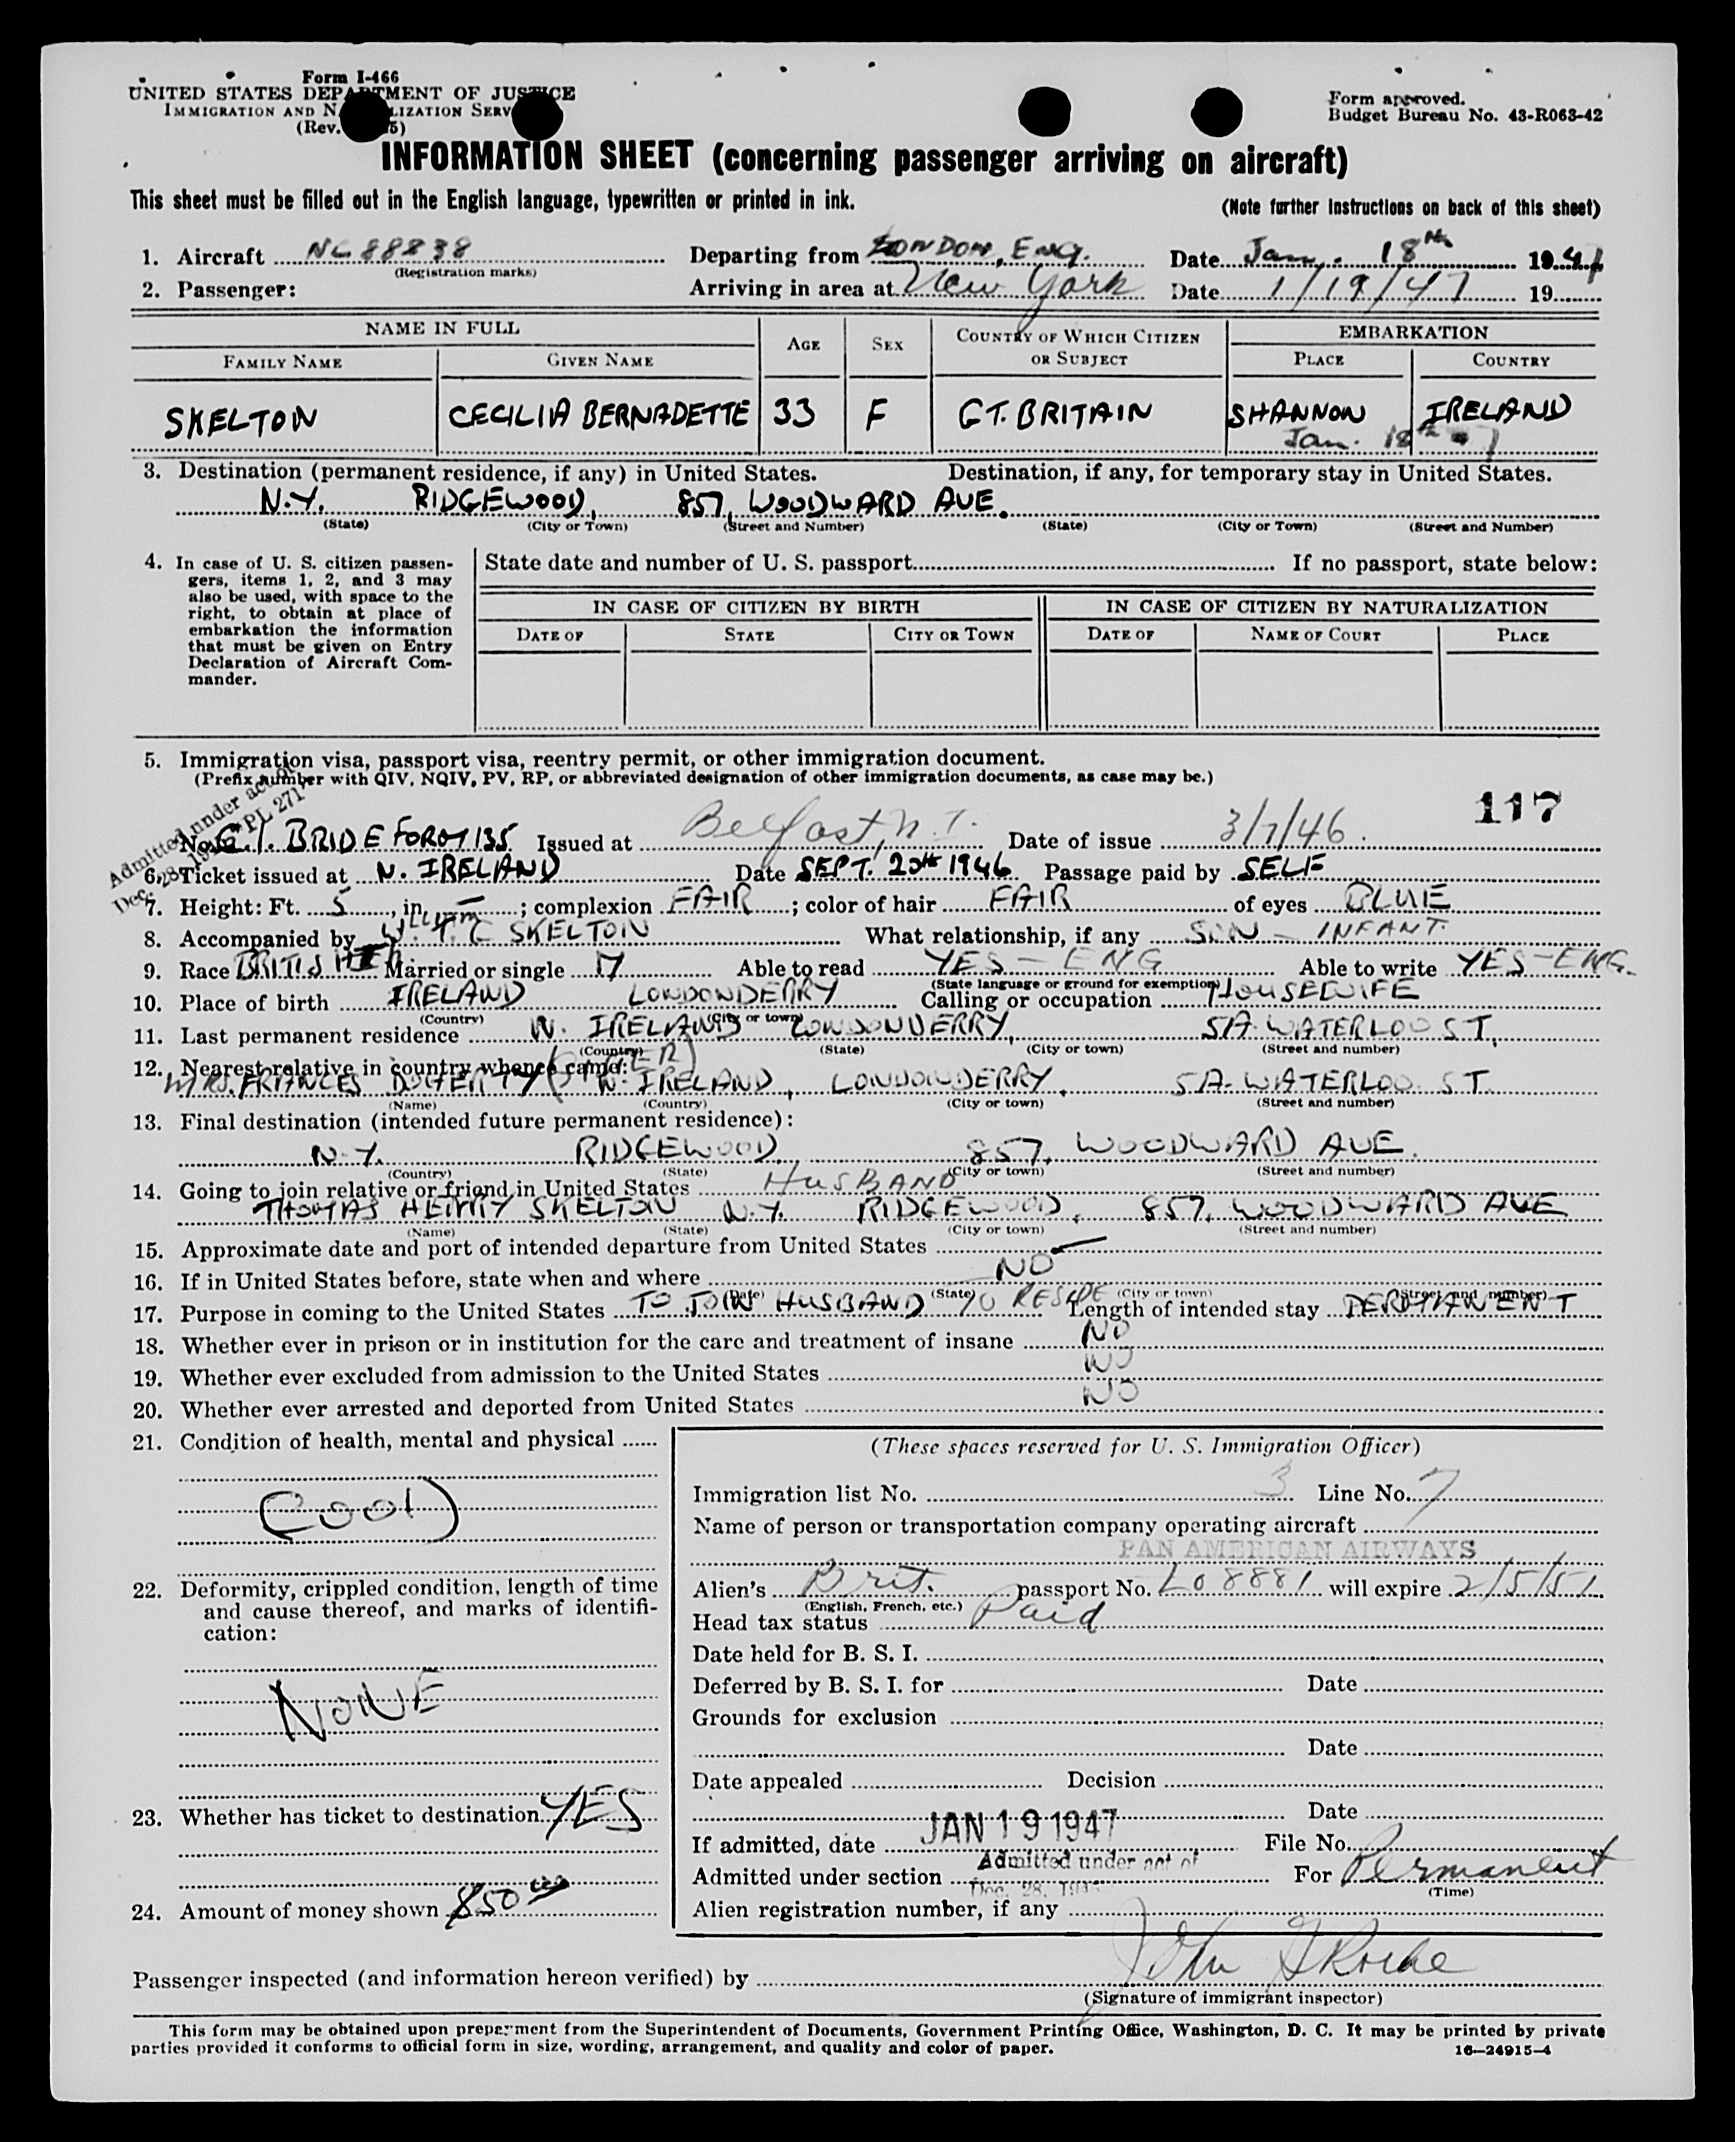 Form I-466
UNITED STATES DEPARTMENT OF JUSTICE
IMMIGRATION AND NATURALIZATION SERV
(Rev. 5)
Form approved.
Budget Bureau No. 43-R063-42
INFORMATION SHEET (concerning passenger arriving on aircraft)
This sheet must be filled out in the English language, typewritten or printed in ink.
(Note further instructions on back of this sheet)
1. Aircraft NC 88838 Departing from LONDON, ENG. Date Jan. 18th 1947
(Registration marks)
2. Passenger: Arriving in area at New York Date 1/19/47 19
NAME IN FULL AGE SEX COUNTRY OF WHICH CITIZEN OR SUBJECT EMBARKATION
FAMILY NAME GIVEN NAME PLACE COUNTRY
SKELTON CECILIA BERNADETTE 33 F GT. BRITAIN SHANNON IRELAND
Jan. 18th 47
3. Destination (permanent residence, if any) in United States. Destination, if any, for temporary stay in United States.
N.Y. RIDGEWOOD, 857, WOODWARD AVE.
(State) (City or Town) (Street and Number) (State) (City or Town) (Street and Number)
4. In case of U. S. citizen passen-
gers, items 1, 2, and 3 may
also be used, with space to the
right, to obtain at place of
embarkation the information
that must be given on Entry
Declaration of Aircraft Com-
mander.
State date and number of U. S. passport If no passport, state below:
IN CASE OF CITIZEN BY BIRTH IN CASE OF CITIZEN BY NATURALIZATION
DATE OF STATE CITY OR TOWN DATE OF NAME OF COURT PLACE
5. Immigration visa, passport visa, reentry permit, or other immigration document.
(Prefix number with QIV, NQIV, PV, RP, or abbreviated designation of other immigration documents, as case may be.)
Admitted under act of
Dec. 28, 194 PL 271
117
No. G.I. BRIDE FORM 135 Issued at Belfast, N.I. Date of issue 3/7/46.
6. Ticket issued at N. IRELAND Date SEPT. 20th 1946 Passage paid by SELF
7. Height: Ft. 5, in. –; complexion FAIR; color of hair FAIR of eyes BLUE
8. Accompanied by William T. C SKELTON What relationship, if any SON - INFANT.
9. Race BRITISH Married or single M Able to read YES - ENG Able to write YES - ENG.
(State language or ground for exemption)
10. Place of birth IRELAND LONDONDERRY Calling or occupation HOUSEWIFE
(Country) (City or town)
11. Last permanent residence N. IRELAND LONDONDERRY, 5A. WATERLOO ST.
(Country) (State) (City or town) (Street and number)
12. Nearest relative in country whence came: (SISTER)
MRS. FRANCES DOHERTY N. IRELAND, LONDONDERRY, 5A. WATERLOO. ST.
(Name) (Country) (City or town) (Street and number)
13. Final destination (intended future permanent residence):
N.Y. RIDGEWOOD, 857, WOODWARD AVE.
(Country) (State) (City or town) (Street and number)
14. Going to join relative or friend in United States HUSBAND
THOMAS HENRY SKELTON N.Y. RIDGEWOOD, 857, WOODWARD AVE
(Name) (State) (City or town) (Street and number)
15. Approximate date and port of intended departure from United States –
16. If in United States before, state when and where NO
(Date) (State) (City or town) (Street and number)
17. Purpose in coming to the United States TO JOIN HUSBAND TO RESIDE Length of intended stay PERMANENT
18. Whether ever in prison or in institution for the care and treatment of insane NO
19. Whether ever excluded from admission to the United States NO
20. Whether ever arrested and deported from United States NO
21. Condition of health, mental and physical
Good
22. Deformity, crippled condition, length of time
and cause thereof, and marks of identifi-
cation:
NONE
23. Whether has ticket to destination YES
24. Amount of money shown 850
(These spaces reserved for U. S. Immigration Officer)
Immigration list No. 3 Line No. 7
Name of person or transportation company operating aircraft
PAN AMERICAN AIRWAYS
Alien's Brit. passport No. LO8881 will expire 2/5/51
(English, French, etc.)
Head tax status Paid
Date held for B. S. I.
Deferred by B. S. I. for Date
Grounds for exclusion
Date
Date appealed Decision
Date
If admitted, date JAN 19 1947 File No.
Admitted under section Admitted under act of For Permanent
Dec. 28, 194
(Time)
Alien registration number, if any
Passenger inspected (and information hereon verified) by John
(Signature of immigrant inspector)
This form may be obtained upon prepayment from the Superintendent of Documents, Government Printing Office, Washington, D. C. It may be printed by private
parties provided it conforms to official form in size, wording, arrangement, and quality and color of paper.
16—24915-4